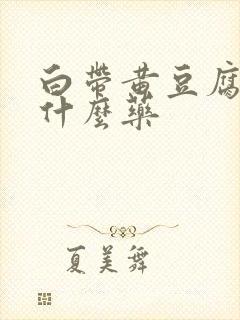 白帶黃豆腐
什麼藥
夏美舞